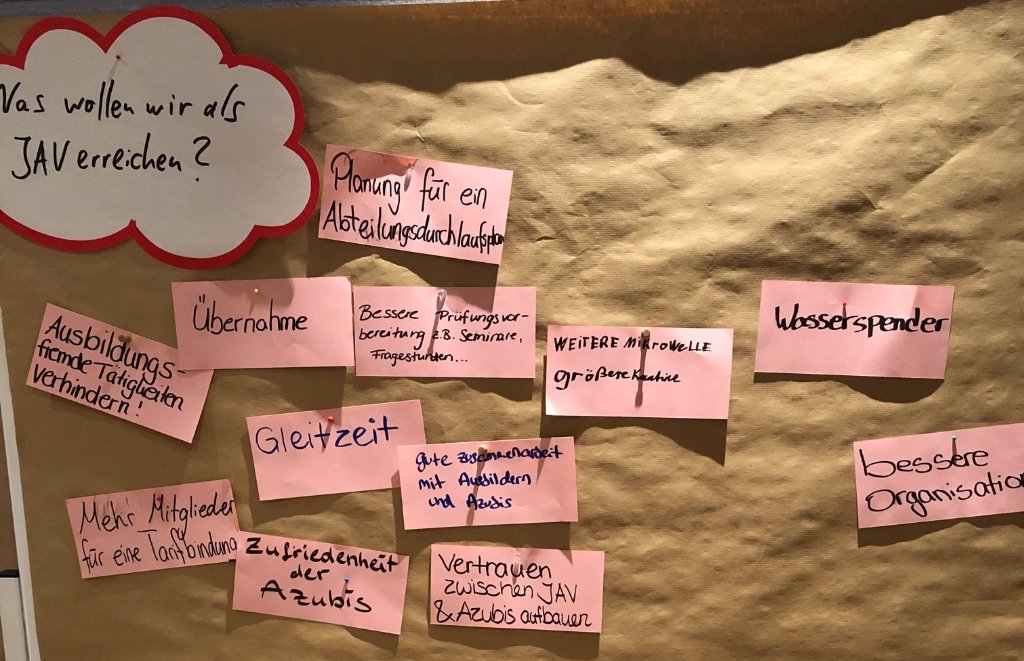 Was wollen wir als
JAV erreichen?
Planung für ein
Abteilungsdurchlaufsplan
Übernahme
Bessere Prüfungsvor-
bereitung z.B. Seminare,
Fragestunden...
WEITERE MiKROWELLE
größere Kantine
Wasserspender
Ausbildungs-
fremde Tätigkeiten
verhindern!
Gleitzeit
gute Zusammenarbeit
mit Ausbildern
und Azubis
bessere
Organisation
Mehr Mitglieder
für eine Tarifbindung
Zufriedenheit
der
Azubis
Vertrauen
zwischen JAV
& Azubis aufbauen